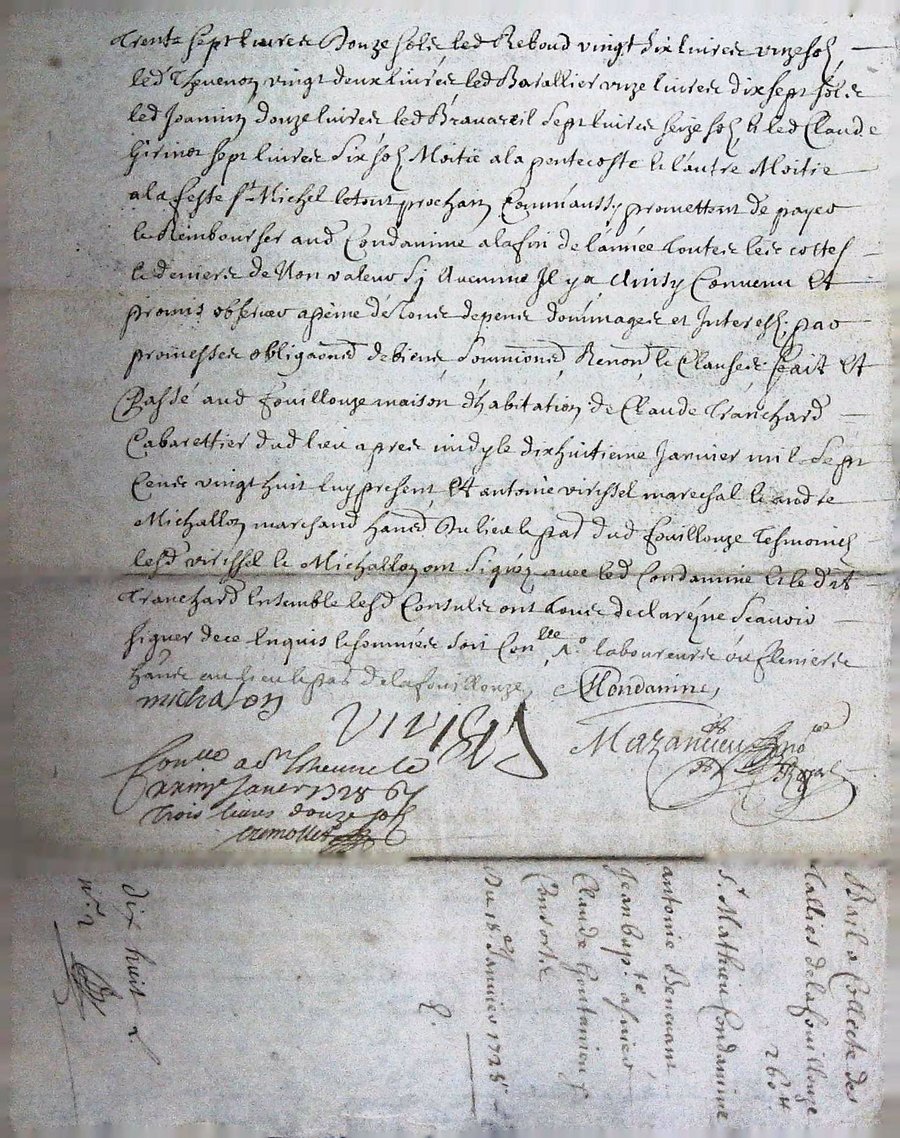 Trente sept livres Douze sols led Reboud vingt dix livres unze sols
led Thevenon vingt deux livres led Barallier unze livres dix sept sols
led Joannin douze livres led sept livres seize sols & led Claude
Girinot sept livres six sols Moitié a la pentecoste & l'autre Moitie
a la feste st Michel le tout prochain Comm'aussy promettent de payer
& Rembourser aud Condamine a la fin de l'année toutes les cottes
& deniers de Non valeur sy Aucunne Il y a Ainsy Convenu Et
promis observer a peine de tous depens dommages et Interests par
promesses obligaons de biens, soumions, Renons & Clauses fait Et
Passé aud fouillouze maison d'habitation de Claude Tranchard
Cabarettier dud lieu apres midy le dixhuitieme Janvier mil sept
Cens vingt huit luy present Et antoine virissel marechal & andre
Michallon marchand hans du lieu & par dud fouillouze tesmoins
lesd virissel & Michallon ont signés avec led Condamine & led it
Tranchard Ensemble lesd Consuls ont tous declaré ne scavoir
signer de ce Enquis & sommés soit Conlle, No laboureurs ou
hans au lieu & par de la fouillouze, Condamine,
michalon
virissel
Mazancieu no
Royal
Conllé a St Etienne le
Janier 1728
Trois livres douze sols
Bail a Collecte des
tailles de la fouillouze
260lt
St Mathieu Condamine
antoine
Jean bapte
Claude
Consorts
Du 18e Janvier 1728
dix huit
n° 2